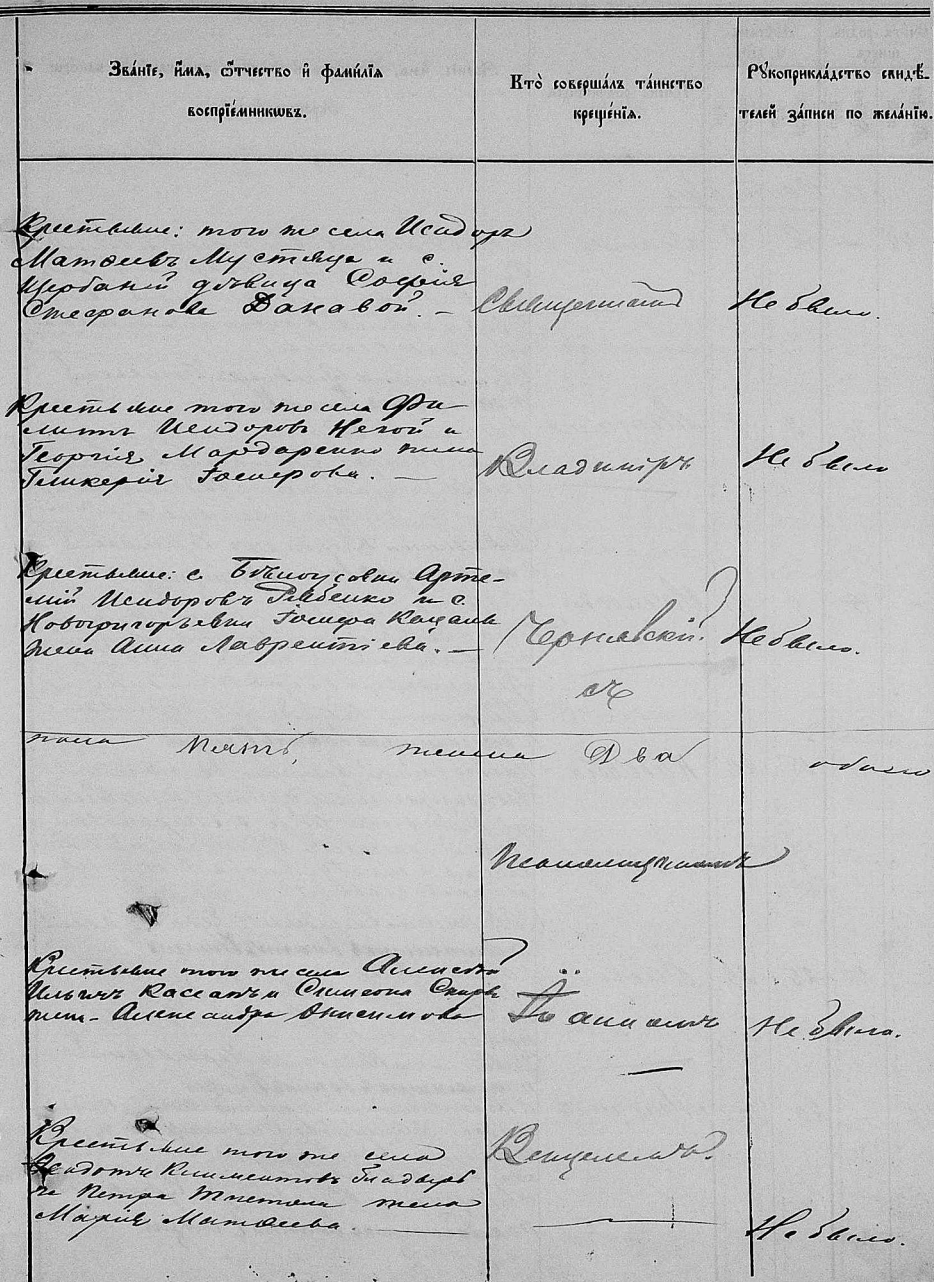 Зва́нїе, и́мя, ѻ҆́тчество и҆ фами́лїя
воспрїе́мникωвъ.
Кто̀ соверша́лъ та́инство
креще́нїя.
Рꙋкоприкла́дство свидѣ́-
телей за́писи по жела́нїю.
Крестьяне: того же села Исидоръ
Матѳеевъ Мустяца и с.
Щербаней дѣвица Софія
Стефанова Данавой. —
Священникъ
Не было.
Крестьяне того же села Фи-
липпъ Исидоровъ Негой и
Георгія Мардаренко жена
Гликерія Іосифова. —
Владиміръ
Не было
Крестьяне: с. Бѣлоусовки Арте-
мій Исидоровъ Рябенко и с.
Новогригорьевки Іосифа
жена Анна Лаврентіева. —
Чернявскій.
Не было.
съ
пола пять, женска два обоего
Псаломщикомъ
Крестьяне того же села Алексѣй
Ильичъ и Симеона
жена Александра Анисимова
Не было.
Крестьяне того же села
Климентовъ
Петра жена
Марія Матѳеева.
Венцелемъ.
Не было.